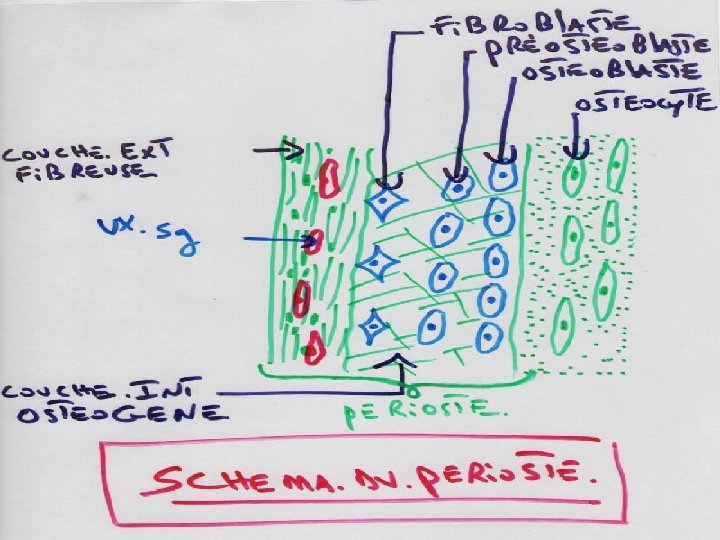 FiBRoBlASTE
pRÉOSTEOBlASTE
OSTEOBlASTE
OSTEOCyTE
COUCHE. EXT
FiBREUSE
VX. Sg
COUCHE. INT
OSTEOGENE
pERiOSTE.
SCHEMA. DU. PERiOSTE.